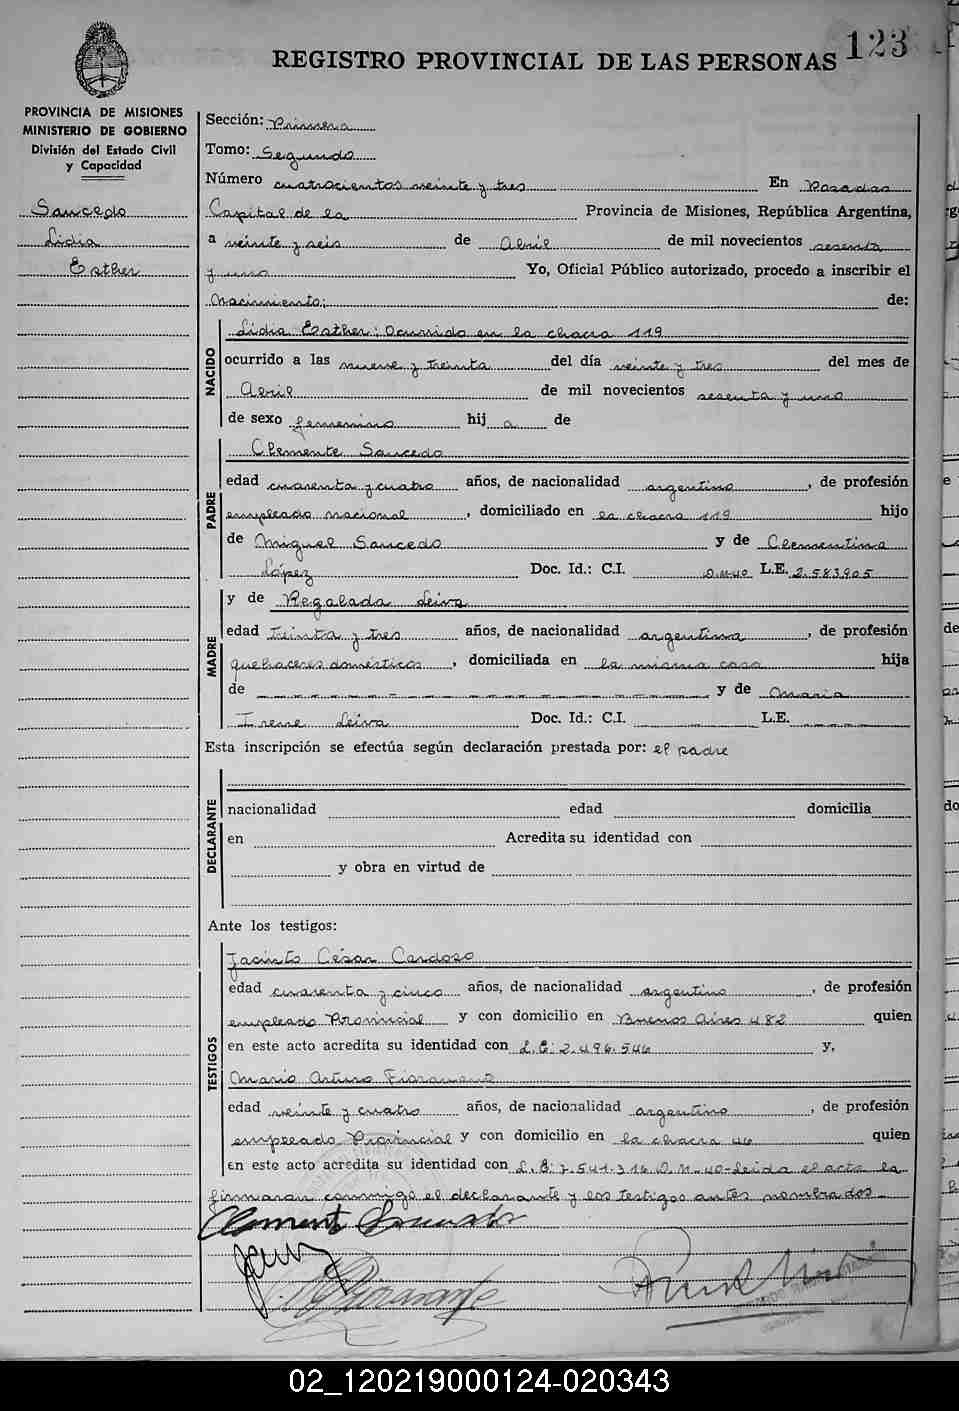 123
REGISTRO PROVINCIAL DE LAS PERSONAS
PROVINCIA DE MISIONES
MINISTERIO DE GOBIERNO
División del Estado Civil
y Capacidad
Saucedo
Lidia
Esther
Sección: Primera
Tomo: Segundo
Número cuatrocientos veinte y tres En Posadas
Capital de la Provincia de Misiones, República Argentina,
a veinte y seis de Abril de mil novecientos sesenta
y uno Yo, Oficial Público autorizado, procedo a inscribir el
Nacimiento: de:
NACIDO
Lidia Esther: Ocurrido en la chacra 119
ocurrido a las nueve y treinta del día veinte y tres del mes de
Abril de mil novecientos sesenta y uno
de sexo femenino hij a de
Clemente Saucedo
PADRE
edad cuarenta y cuatro años, de nacionalidad argentino, de profesión
empleado nacional, domiciliado en la chacra 119 hijo
de Miguel Saucedo y de Clementina
López Doc. Id.: C.I. D.M.40 L.E. 2.583.905
y de Regalada Leiva
MADRE
edad treinta y tres años, de nacionalidad argentina, de profesión
quehaceres domésticos, domiciliada en la misma casa hija
de y de Maria
Irene Leiva Doc. Id.: C.I. L.E.
Esta inscripción se efectúa según declaración prestada por: el padre
DECLARANTE
nacionalidad edad domicilia
en Acredita su identidad con
y obra en virtud de
Ante los testigos:
TESTIGOS
Jacinto César Cardoso
edad cuarenta y cinco años, de nacionalidad argentino, de profesión
empleado Provincial y con domicilio en Buenos Aires 482 quien
en este acto acredita su identidad con L.E: 2.496.546 y,
Mario Arturo
edad veinte y cuatro años, de nacionalidad argentino, de profesión
empleado Provincial y con domicilio en la chacra 46 quien
en este acto acredita su identidad con L.E: 7.541.316 D.M.40-Leida el acta la
firmaran conmigo el declarante y los testigos antes nombrados-
02_120219000124-020343